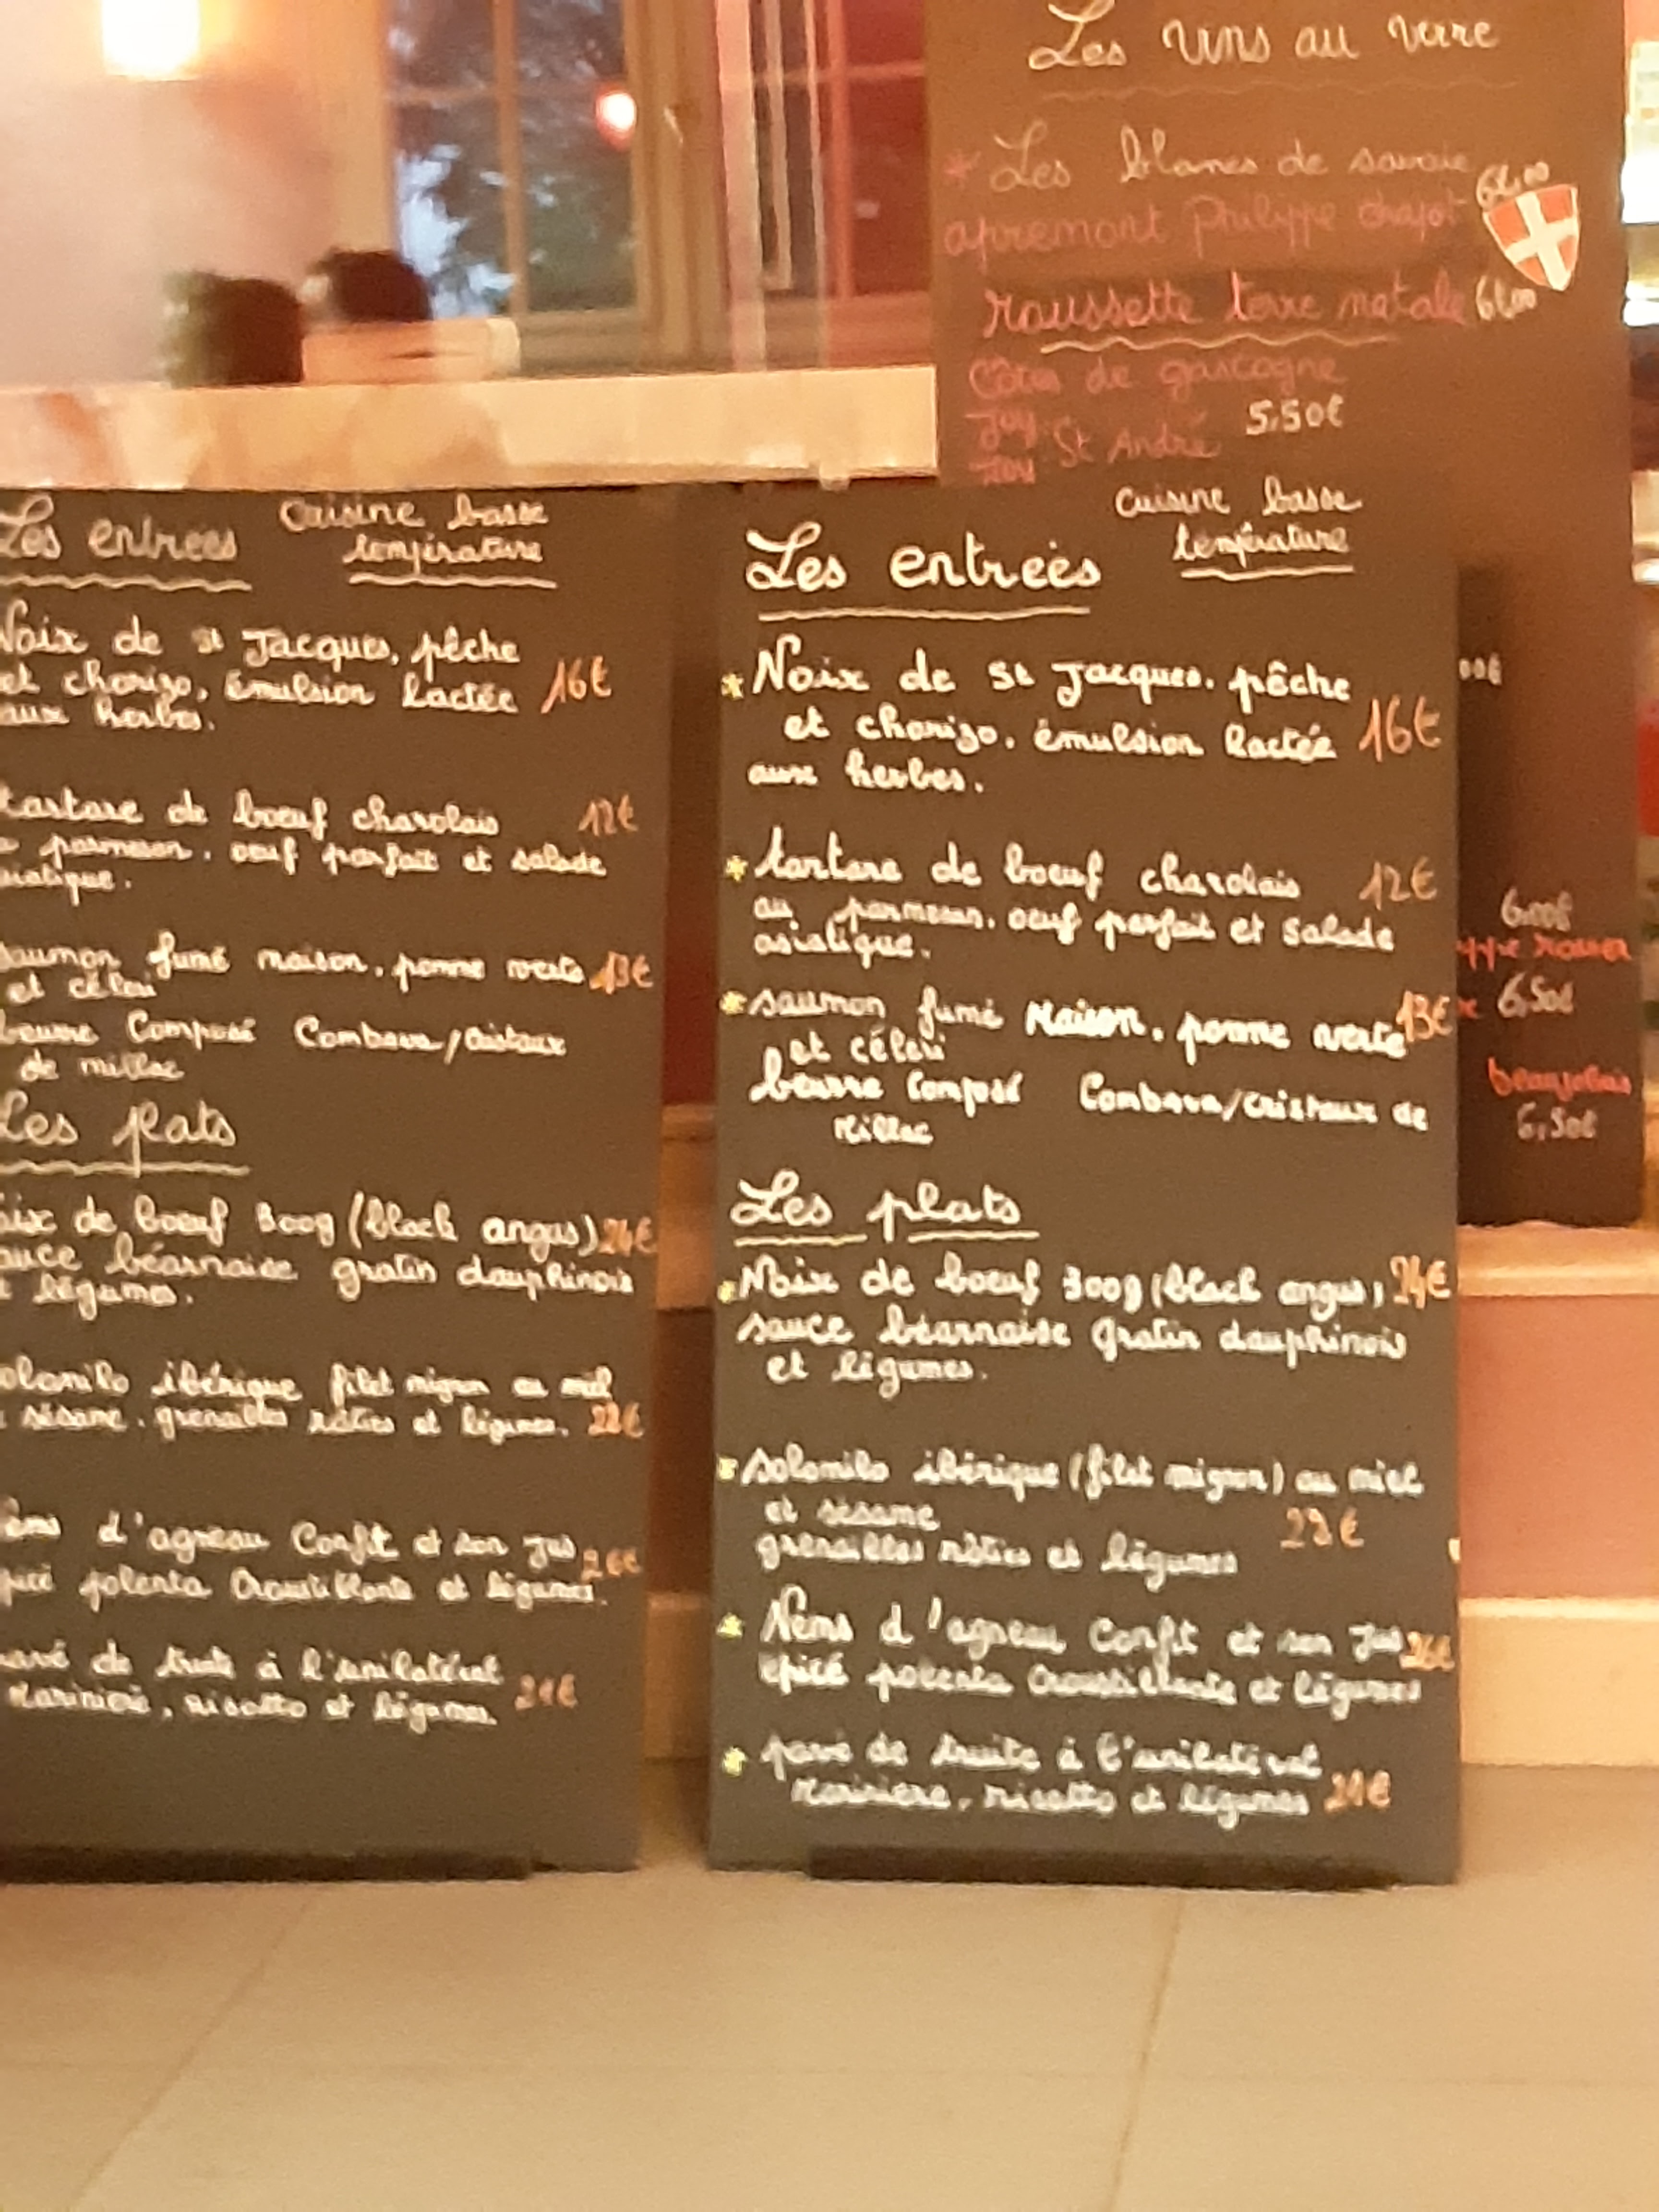 Les vins au verre
* Les blancs de savoie
apremont Philippe
Roussette terre natale
Côtes de gascogne
Joy 5,50€
St André
Joy
Les entrées
Cuisine basse
température
Noix de St Jacques, pêche
et chorizo, émulsion lactée 16€
aux herbes.
tartare de boeuf charolais 12€
parmesan, oeuf parfait et salade
saumon fumé maison, pomme verte 13€
et céleri
beurre Composé Combava/Cristaux
de millac
Les plats
de boeuf 300g (black angus)
béarnaise gratin dauphinois
légumes.
ibérique filet mignon au miel
sésame, grenailles rôties et légumes.
d'agneau Confit et son jus
polenta Croustillante et légumes.
de truite à l'unilatéral
Marinière, risotto et légumes
Les entrées
Cuisine basse
température
* Noix de St Jacques, pêche
et chorizo, émulsion lactée 16€
aux herbes.
* tartare de boeuf charolais 12€
au parmesan, oeuf parfait et salade
asiatique.
* saumon fumé Maison, pomme verte 13€
et céleri
beurre Composé Combava/cristaux de
Millac
Les plats
* Noix de boeuf 300g (black angus)
sauce béarnaise gratin dauphinois
et légumes.
* solomilo ibérique (filet mignon) au miel
et sésame
grenailles rôties et légumes
* Nems d'agneau Confit et son Jus 26€
épicé polenta Croustillante et légumes
* pavé de truite à l'unilatéral
Marinière, risotto et légumes
00€
6,00€
6,50€
beaujolais
6,50€